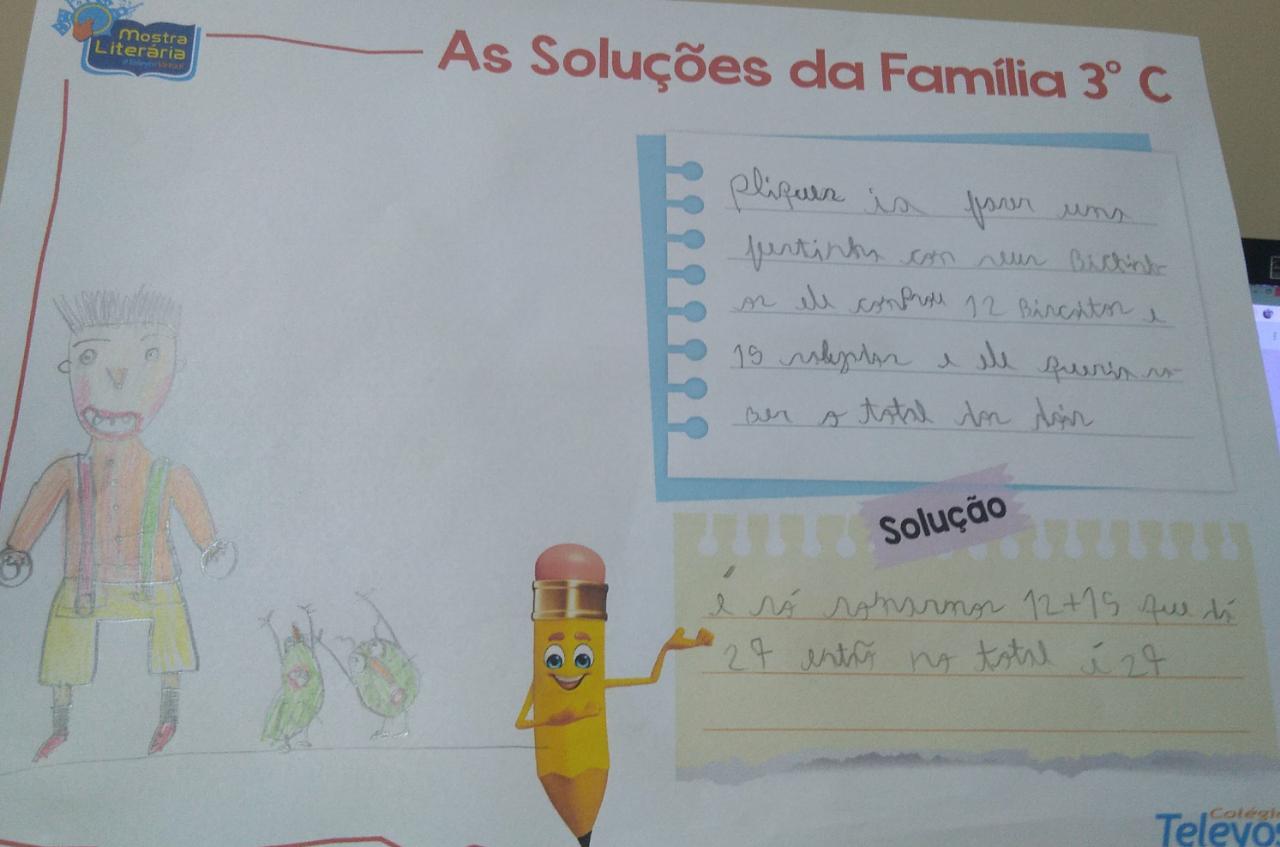 Mostra
Literária
As Soluções da Família 3° C
ia fazer uma
festinha com seus Bichinh-
os ele comprou 12 Biscoitos e
15 e ele queria sa-
ber o total dos dois
Solução
é só somarmos 12+15 que dá
27 então no total é 27
Colégio